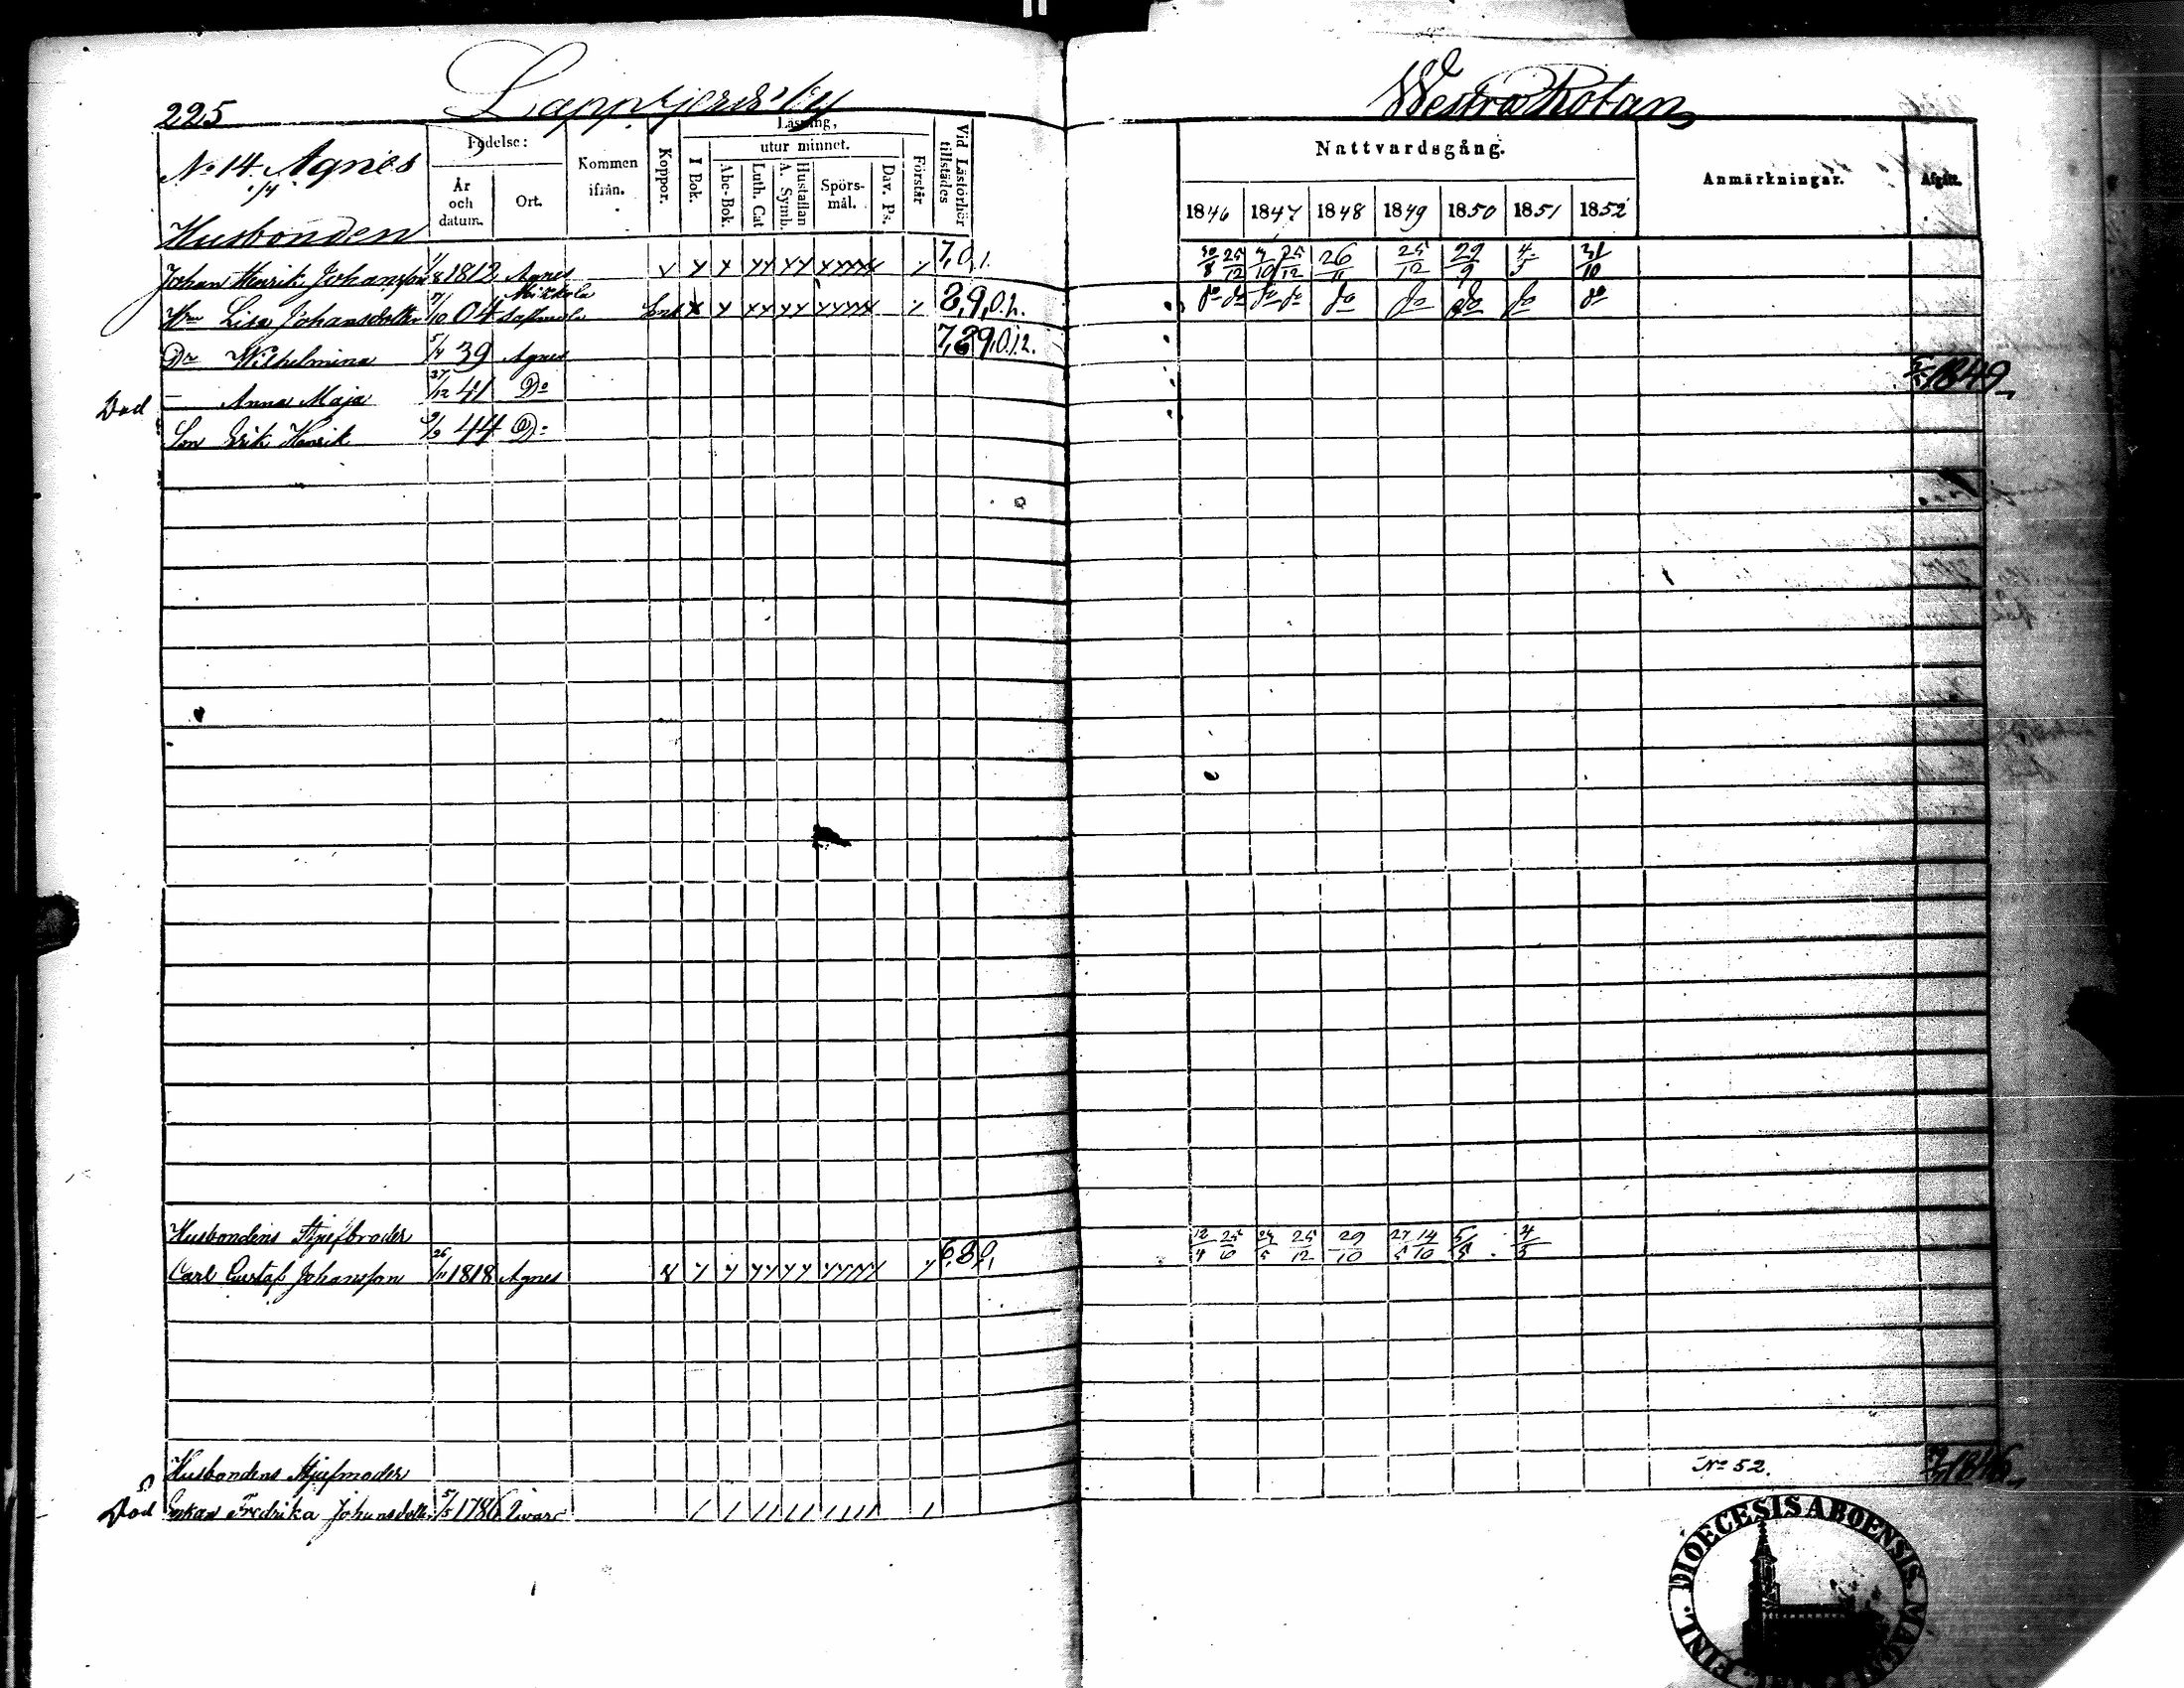 225
Lappfjerds by
Westra Rotan
No 14 Agnes
1/4
Födelse:
År och datum.
Ort.
Kommen ifrån.
Koppor.
Läsning,
I Bok.
utur minnet.
Abc-Bok.
Luth. Cat
Hustaflan A. Symb.
Spörs-mål.
Dav. Ps.
Förstår
Vid Läsförhör tillstädes
Nattvardsgång.
1846 1847 1848 1849 1850 1851 1852
Anmärkningar.
Afgått.
Husbonden
Johan Henrik Johansson 1/8 1812 Agnes 7,0,1. 30/8 25/12 25/12 26/11 25/12 29/9 4/5 31/10
Hu Lisa Johansdotter 7/10 04 8,9,0.2. do do do do do do do do do
Dr Wilhelmina 5/4 39 Agnes 7,89,0.1.2.
Död — Anna Maja 27/12 41 Do 1849
Son Erik Henrik 9/9 44 Do
Husbondens Styfbroder
Carl Gustaf Johansson 26/11 1818 Agnes 6,89, 12/4 25/10 25/12 29/10 27/5 14/10 5/5 4/5
Husbondens Styfmoder No 52. 1846
Död Enkan Fredrika Johansdotter 5/5 1786
DIOECESIS ABOENSIS. FINL.